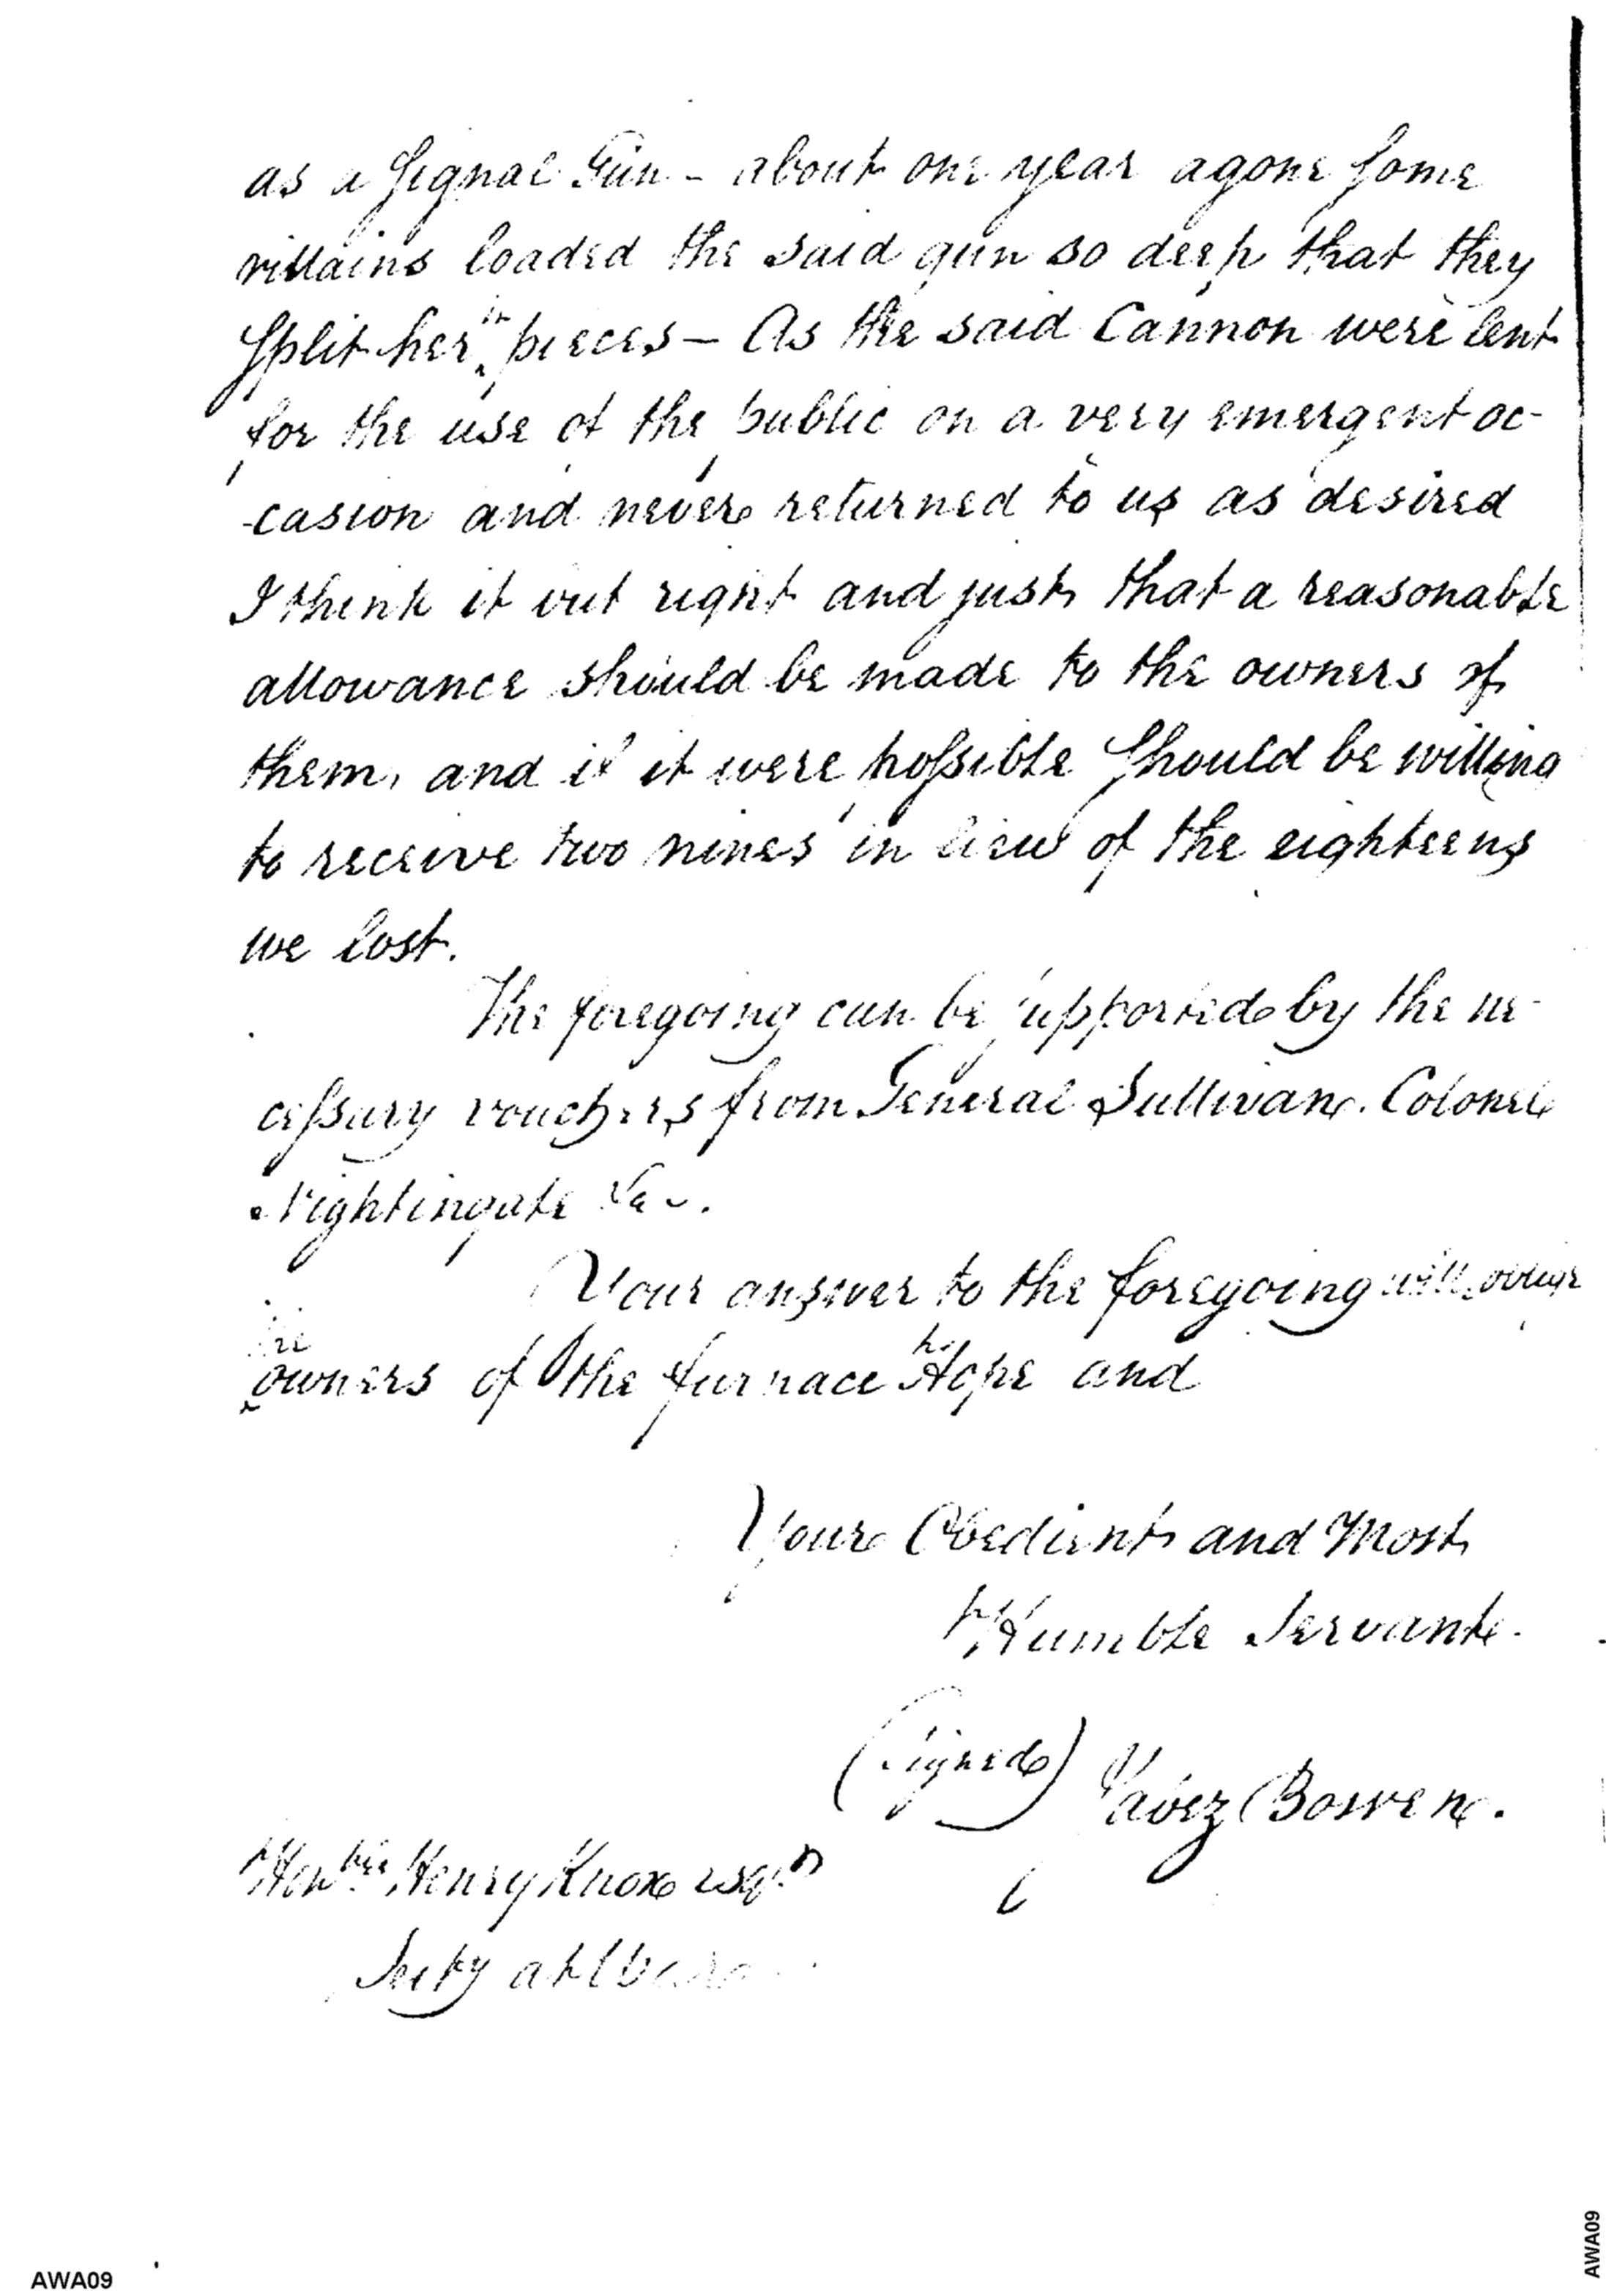 as a Signal Gun - about one year agone some
villains loaded the said gun so deep that they
split her in pieces — As the said Cannon were lent
for the use of the public on a very emergent oc-
-casion and never returned to us as desired
I think it but right and just that a reasonable
allowance should be made to the owners of
them, and if it were possible should be willing
to receive two nines in lieu of the eighteens
we lost.
The foregoing can be supported by the ne-
cessary vouchers from General Sullivan. Colonel
Nightingale &c.
Your answer to the foregoing will oblige
the
owners of the furnace Hope and
Your Obedient and Most
Humble Servant.
(Signed) Jabez Bowen.
Honble Henry Knox esqr
Secty at War
AWA09
AWA09